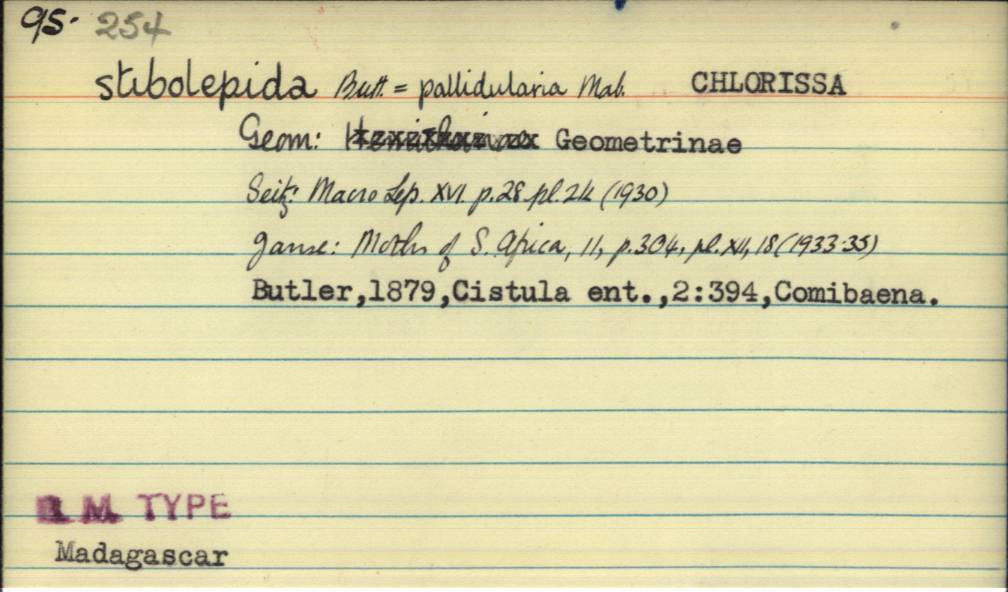 95. 254
stibolepida Butl. = pallidularia Mab. CHLORISSA
Geom: Geometrinae
Seitz: Macro Lep. XVI. p.28. pl.2k (1930)
Janse: Moths of S. Africa, 11, p.304, pl. XII, 18 (1933-35)
Butler,1879,Cistula ent.,2:394,Comibaena.
B. M. TYPE
Madagascar